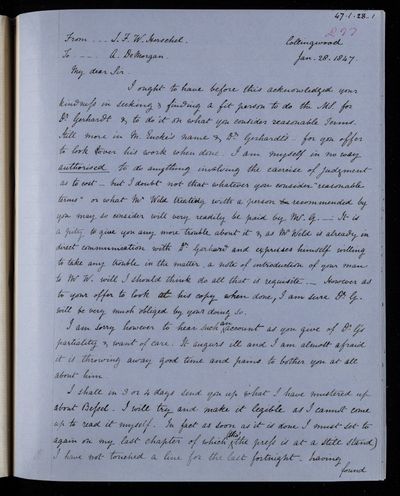 47.1.28.1
From ... J. F. W. Herschel.
To ... A. DeMorgan.
Collingwood
Jan. 28. 1847.
My dear Sir.
I ought to have before this acknowledged your
kindness in seeking & finding a fit person to do the MS. for
Dr Gerhardt & to do it on what you consider reasonable terms.
Still more in M. Encke's name & Dr Gerhardt's for you offer
to look over his work when done. I am myself in no way
authorised to do anything involving the exercise of judgment
as to cost — but I doubt not that whatever you consider "reasonable
terms" or what Mr Wild treating with a person recommended by
you may so consider will very readily be paid by Mr. G. — It is
a pity to give you any more trouble about it & as Mr Wild is already in
direct communication with Dr Gerhardt and expresses himself willing
to take any trouble in the matter, a note of introduction of your man
to Mr W. will I should think do all that is requisite. — However as
to your offer to look at his copy when done, I am sure Dr G.
will be very much obliged by your doing so.
I am sorry however to hear such an account as you give of Dr G's
partiality & want of care. It augurs ill and I am almost afraid
it is throwing away good time and pains to bother you at all
about him.
I shall in 3 or 4 days send you up what I have mustered up
about Bessel. I will try and make it legible as I cannot come
up to read it myself. In fact as soon as it is done I must set to
again on my last chapter of which (tho' the press is at a still stand)
I have not touched a line for the last fortnight. having
found